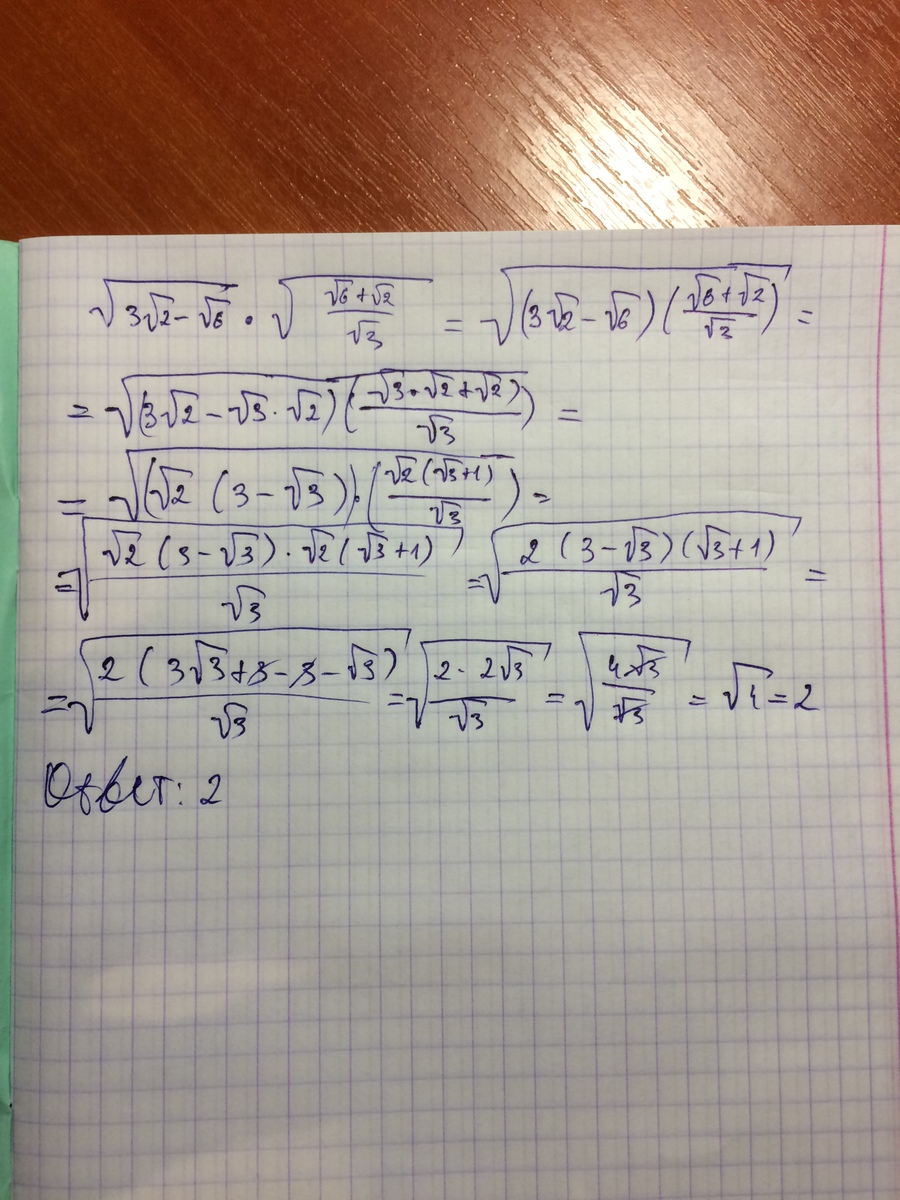 √(3√2 − √6) · √((√6 + √2)/√3) = √((3√2 − √6)((√6 + √2)/√3)) =
= √((3√2 − √3 · √2)((√3 · √2 + √2)/√3)) =
= √((√2 (3 − √3)) · (√2(√3+1)/√3)) =
= √((√2 (3 − √3) · √2(√3+1))/√3) = √((2 (3 − √3)(√3+1))/√3) =
= √((2 (3√3 + 3 − 3 − √3))/√3) = √((2 · 2√3)/√3) = √((4√3)/√3) = √4 = 2
Ответ: 2